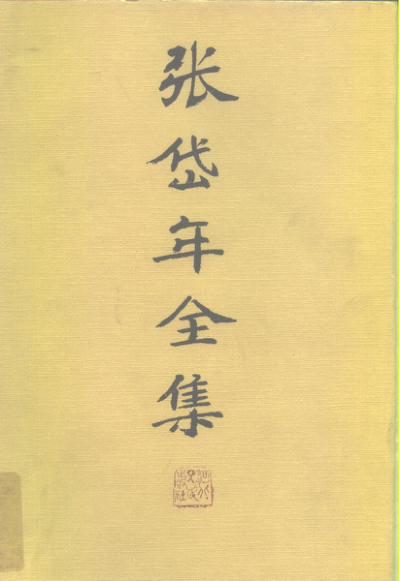 张岱年全集